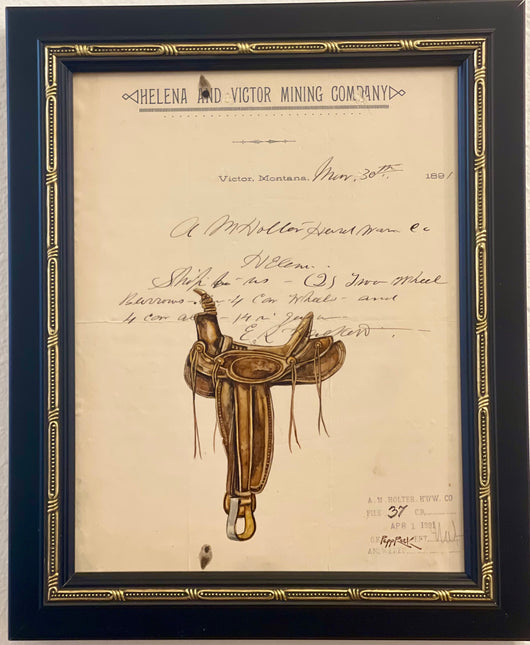 HELENA AND VICTOR MINING COMPANY
Victor, Montana, Mar, 30th 1891
A M Holter Hardware Co
Helena
Ship to us - (2) Two Wheel
Barrows - 4 Car Wheels - and
4 car - 14 in
A. M. HOLTER, H'W. CO
FILE 37 CR.
APR 1 1891